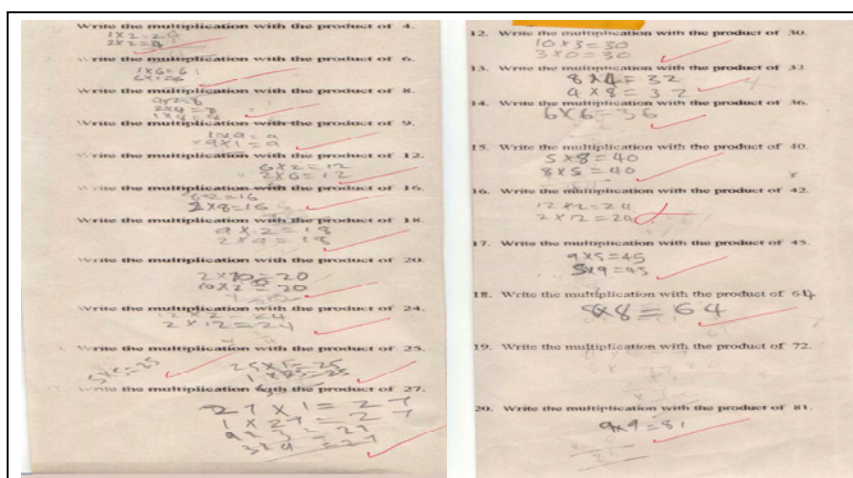 Write the multiplication with the product of 4.
1x2=2
2x2=4
Write the multiplication with the product of 6.
1x6=6
6x1=6
Write the multiplication with the product of 8.
4x2=8
2x4=8
1x4=4
Write the multiplication with the product of 9.
1x9=9
9x1=9
Write the multiplication with the product of 12.
6x2=12
2x6=12
Write the multiplication with the product of 16.
2x8=16
Write the multiplication with the product of 18.
9x2=18
2x9=18
Write the multiplication with the product of 20.
2x10=20
10x2=20
Write the multiplication with the product of 24.
2x12=24
Write the multiplication with the product of 25.
5x5=25
25x1=25
1x25=25
Write the multiplication with the product of 27.
27x1=27
1x27=27
9x3=27
3x9=27
12. Write the multiplication with the product of 30.
10x3=30
3x0=30
13. Write the multiplication with the product of 32.
8x4=32
4x8=32
14. Write the multiplication with the product of 36.
6x6=36
15. Write the multiplication with the product of 40.
5x8=40
8x5=40
16. Write the multiplication with the product of 42.
12x2=24
2x12=24
17. Write the multiplication with the product of 45.
9x5=45
5x9=45
18. Write the multiplication with the product of 64.
8x8=64
19. Write the multiplication with the product of 72.
20. Write the multiplication with the product of 81.
9x9=81